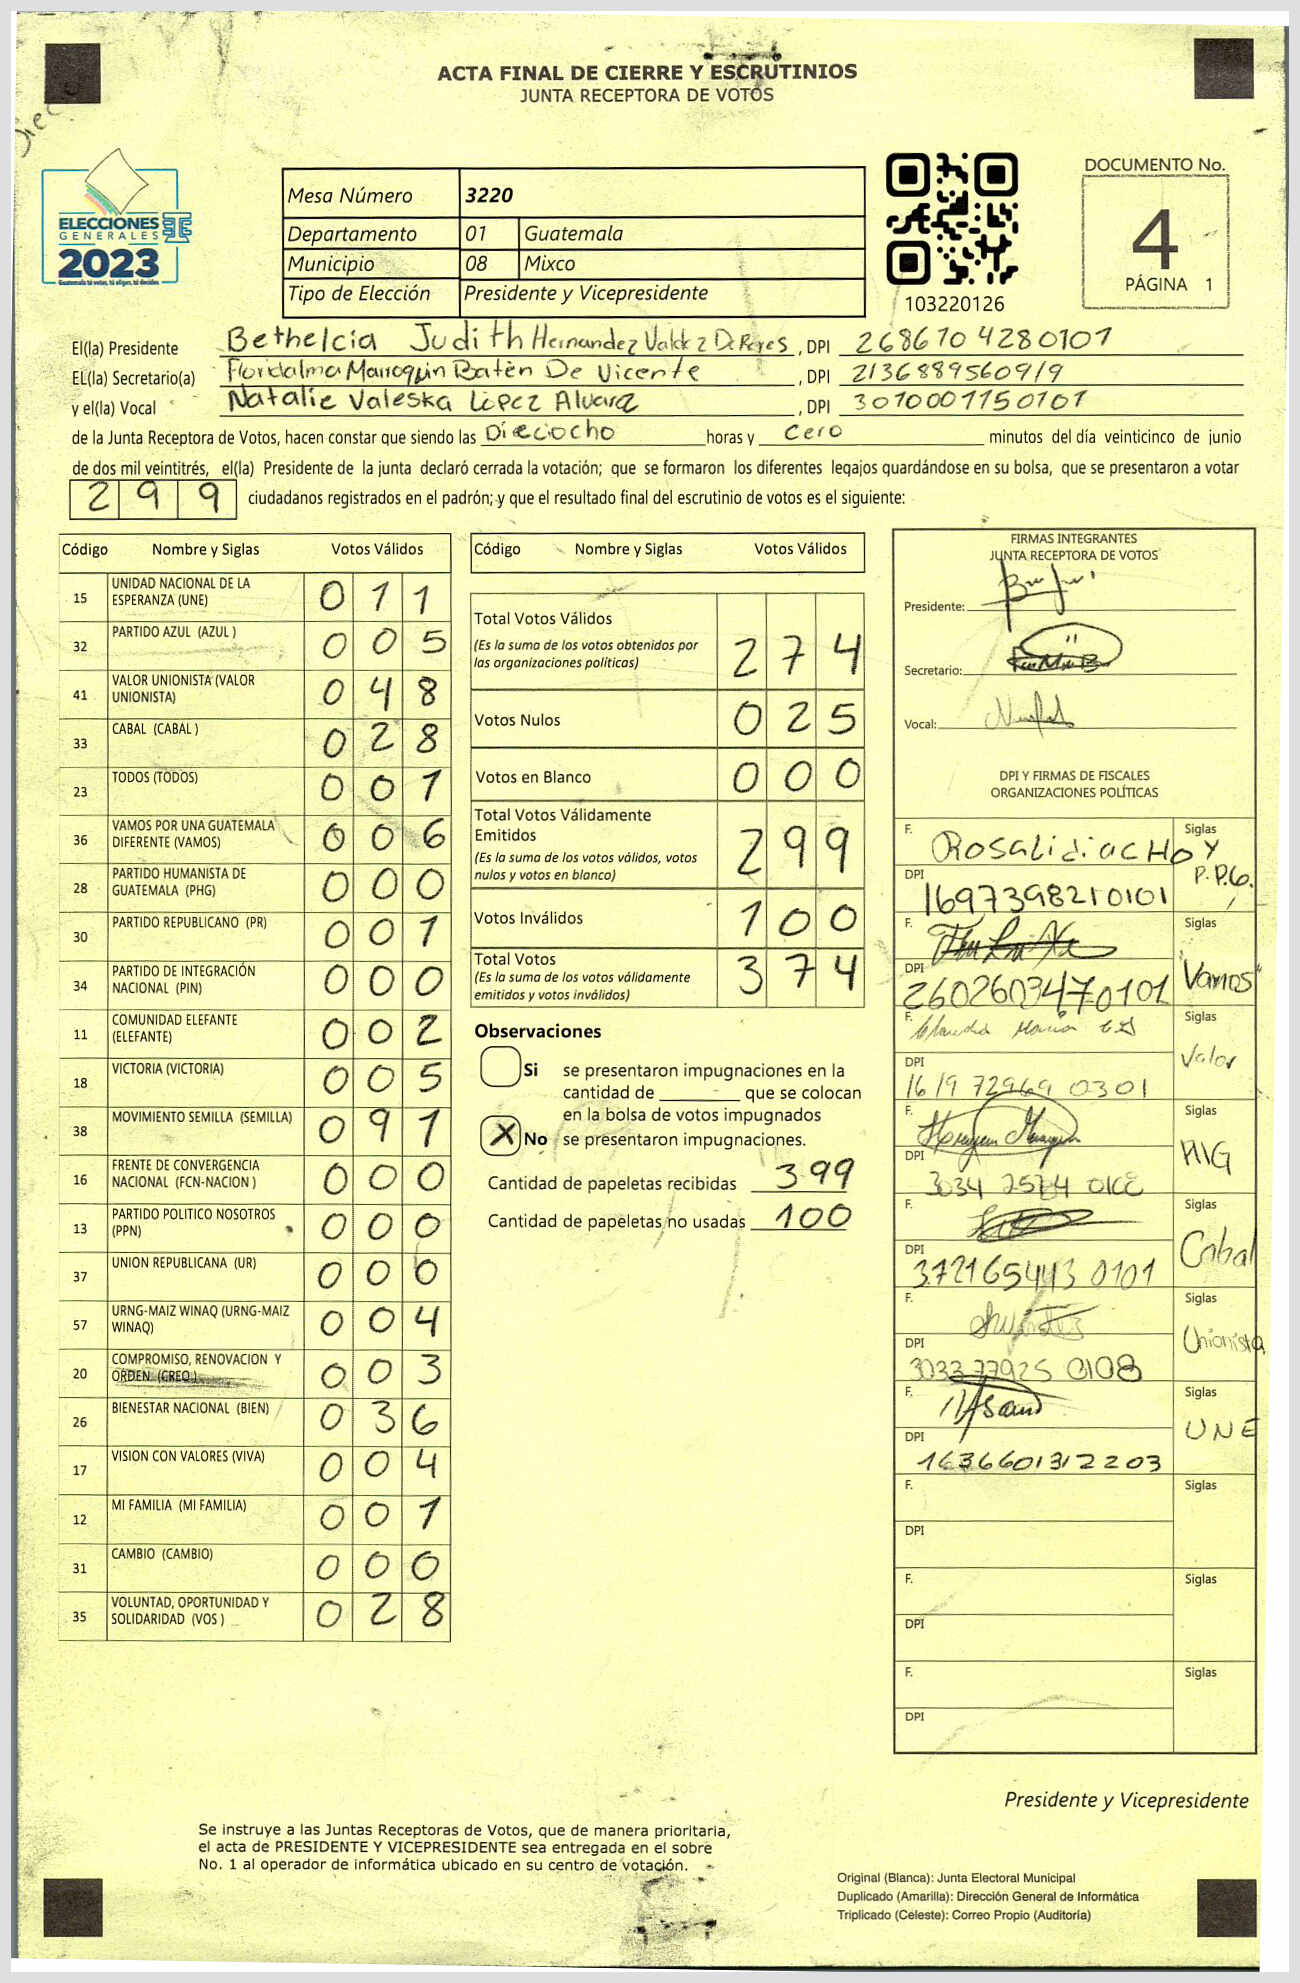 ACTA FINAL DE CIERRE Y ESCRUTINIOS
JUNTA RECEPTORA DE VOTOS
ELECCIONES
GENERALES
2023
Mesa Número 3220
Departamento 01 Guatemala
Municipio 08 Mixco
Tipo de Elección Presidente y Vicepresidente
103220126
DOCUMENTO No.
4
PÁGINA 1
El(la) Presidente Bethelcia Judith Hernandez Valdez De Reyes, DPI 2686704280101
EL(la) Secretario(a) Floridalma Marroquin Batén De Vicente, DPI 2136889560919
y el(la) Vocal Natalie Valeska López Alvarez, DPI 3010001150101
de la Junta Receptora de Votos, hacen constar que siendo las Dieciocho horas y cero minutos del día veinticinco de junio
de dos mil veintitrés, el(la) Presidente de la junta declaró cerrada la votación; que se formaron los diferentes legajos guardándose en su bolsa, que se presentaron a votar
299 ciudadanos registrados en el padrón; y que el resultado final del escrutinio de votos es el siguiente:
Código Nombre y Siglas Votos Válidos
15 UNIDAD NACIONAL DE LA ESPERANZA (UNE) 011
32 PARTIDO AZUL (AZUL ) 005
41 VALOR UNIONISTA (VALOR UNIONISTA) 048
33 CABAL (CABAL ) 028
23 TODOS (TODOS) 001
36 VAMOS POR UNA GUATEMALA DIFERENTE (VAMOS) 006
28 PARTIDO HUMANISTA DE GUATEMALA (PHG) 000
30 PARTIDO REPUBLICANO (PR) 001
34 PARTIDO DE INTEGRACIÓN NACIONAL (PIN) 000
11 COMUNIDAD ELEFANTE (ELEFANTE) 002
18 VICTORIA (VICTORIA) 005
38 MOVIMIENTO SEMILLA (SEMILLA) 091
16 FRENTE DE CONVERGENCIA NACIONAL (FCN-NACION ) 000
13 PARTIDO POLITICO NOSOTROS (PPN) 000
37 UNION REPUBLICANA (UR) 000
57 URNG-MAIZ WINAQ (URNG-MAIZ WINAQ) 004
20 COMPROMISO, RENOVACION Y ORDEN (CREO) 003
26 BIENESTAR NACIONAL (BIEN) 036
17 VISION CON VALORES (VIVA) 004
12 MI FAMILIA (MI FAMILIA) 001
31 CAMBIO (CAMBIO) 000
35 VOLUNTAD, OPORTUNIDAD Y SOLIDARIDAD (VOS ) 028
Código Nombre y Siglas Votos Válidos
Total Votos Válidos 274
(Es la suma de los votos obtenidos por
las organizaciones políticas)
Votos Nulos 025
Votos en Blanco 000
Total Votos Válidamente
Emitidos 299
(Es la suma de los votos válidos, votos
nulos y votos en blanco)
Votos Inválidos 100
Total Votos 374
(Es la suma de los votos válidamente
emitidos y votos inválidos)
Observaciones
Si se presentaron impugnaciones en la
cantidad de ________ que se colocan
en la bolsa de votos impugnados
X No se presentaron impugnaciones.
Cantidad de papeletas recibidas 399
Cantidad de papeletas no usadas 100
FIRMAS INTEGRANTES
JUNTA RECEPTORA DE VOTOS
Presidente:
Secretario:
Vocal:
DPI Y FIRMAS DE FISCALES
ORGANIZACIONES POLÍTICAS
F. Siglas
P.P.G.
DPI 1697398210101
F. Siglas
"Vamos"
DPI 2602603470101
F. Siglas
Valor
DPI 1619 72969 0301
F. Siglas
DPI 3034
F. Siglas
Cabal
DPI 372165443 0101
F. Siglas
Unionista
DPI 3033 77925 0108
F. Siglas
UNE
DPI 1636601312203
F. Siglas
DPI
F. Siglas
DPI
F. Siglas
DPI
Presidente y Vicepresidente
Se instruye a las Juntas Receptoras de Votos, que de manera prioritaria,
el acta de PRESIDENTE Y VICEPRESIDENTE sea entregada en el sobre
No. 1 al operador de informática ubicado en su centro de votación.
Original (Blanca): Junta Electoral Municipal
Duplicado (Amarilla): Dirección General de Informática
Triplicado (Celeste): Correo Propio (Auditoría)